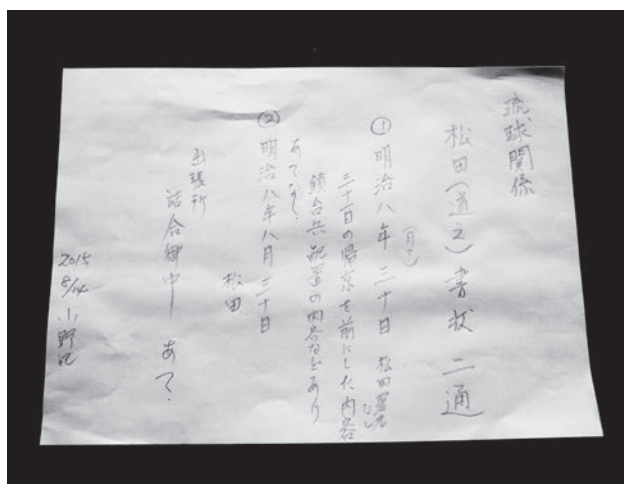 琉球関係
松田(道之)書状 二通
① 明治八年 三十日 松田署名なし
(月了)
三十一日の帰京を前にした内容
鎮台兵配置の内容などあり
あてなし。
② 明治八年八月三十日
松田
出張所
詰合御中 ー あて。
2015
8/14 小野記